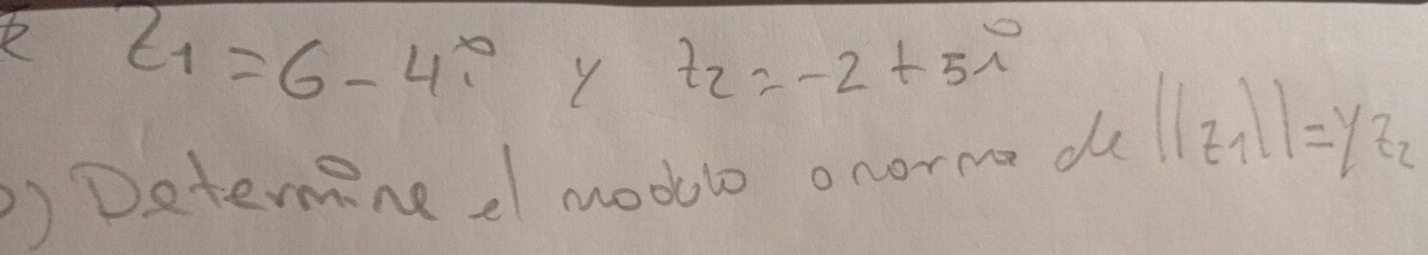 z₁ = 6 - 4i y z₂ = -2 + 5i
) Determine el modulo o norma de ||z₁|| = y z₂